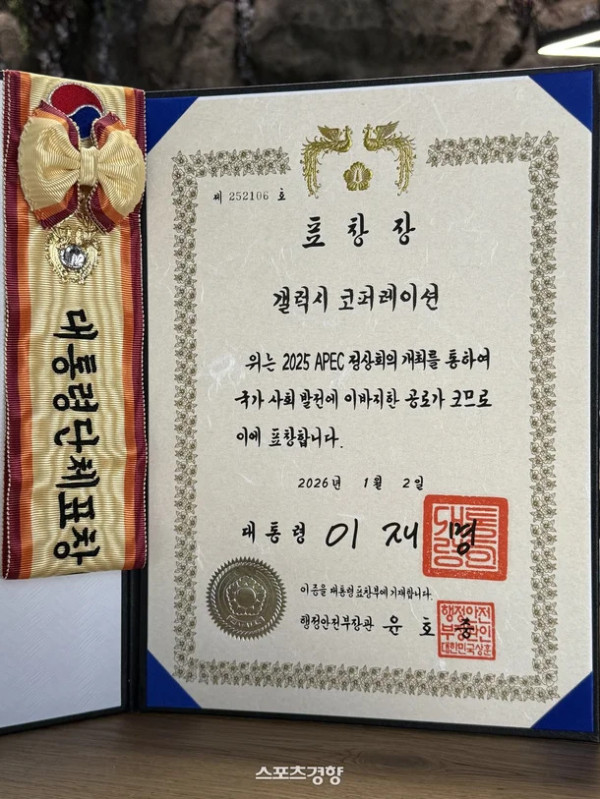 대통령단체표창
제 252106 호
표 창 장
갤럭시 코퍼레이션
위는 2025 APEC 정상회의 개최를 통하여
국가 사회 발전에 이바지한 공로가 크므로
이에 표창합니다.
2026년 1월 2일
대통령 이재명
이 증을 대통령 표창부에 기재합니다.
행정안전부장관 윤호중
행정안전
부장관인
대한민국상훈
스포츠경향